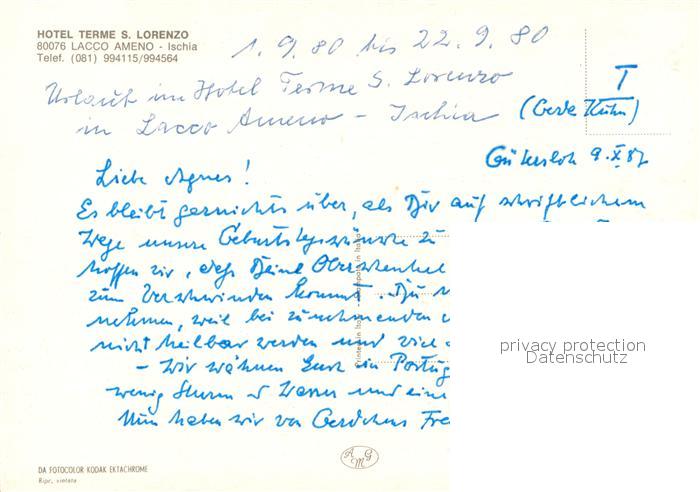 HOTEL TERME S. LORENZO
80076 LACCO AMENO - Ischia
Telef. (081) 994115/994564
1. 9. 80 bis 22. 9. 80
Urlaub im Hotel Terme S. Lorenzo
in Lacco Ameno - Ischia
T
(Gerda Kühn)
Gütersloh 9. X. 87
Liebe Agnes!
Es bleibt garnichts über, als Dir auf schriftlichem
Wege unsere Geburtstagswünsche zu
hoffen wir, daß Deine Oberschenkel
zum Verschwinden kommt. Du
nehmen, weil bei zunehmenden
nicht heilbar werden und viel
- Wir wähnen Euch in Portug
wenig Sturm u Wasser und eine
Nun haben wir von Gerdchens Fre
Printed in Italy - Stampato in Italia
privacy protection
Datenschutz
DA FOTOCOLOR KODAK EKTACHROME
Ripr. vietata
A G M